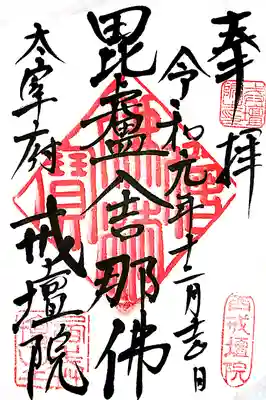 奉拝
令和元年十二月日
毘盧舎那佛
太宰府 戒壇院
西戒壇院